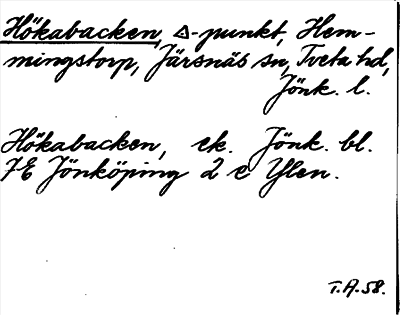 Hökabacken, △-punkt, Hem-
mingstorp, Järsnäs sn, Tveta hd,
Jönk. l.
Hökabacken, ek. Jönk. bl.
7E Jönköping 2 e Ylen.
T.A.58.